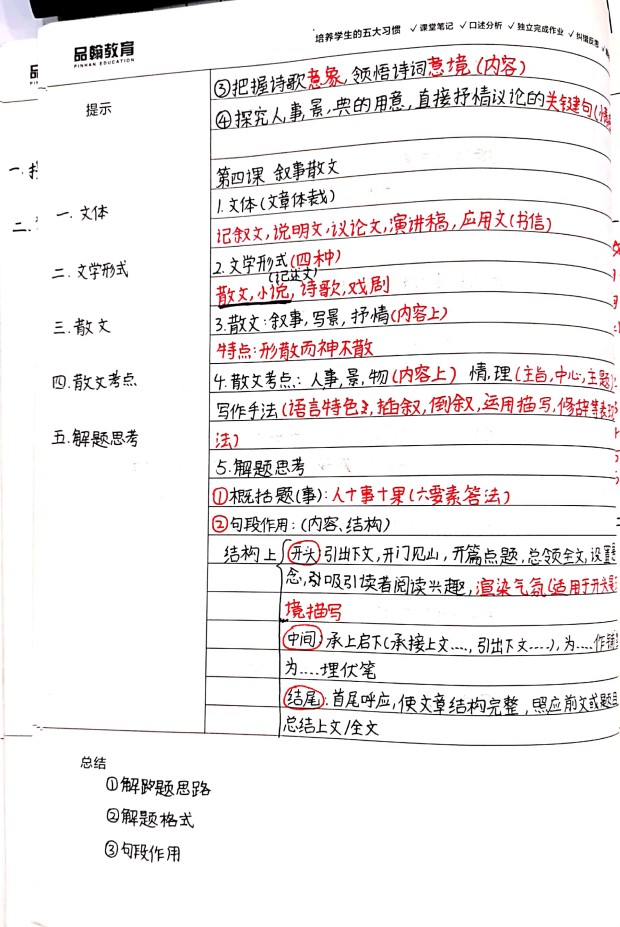 品翰教育
PINHAN EDUCATION
培养学生的五大习惯 ✓课堂笔记 ✓口述分析 ✓独立完成作业 ✓纠错反思
提示
③把握诗歌意象,领悟诗词意境(内容)
④探究人,事,景,典的用意,直接抒情议论的关键建句(情
第四课 叙事散文
一.文体
1.文体(文章体裁)
记叙文,说明文,议论文,演讲稿,应用文(书信)
二.文学形式
2.文学形式(四种)
(记述文)
散文,小说,诗歌,戏剧
三.散文
3.散文:叙事,写景,抒情(内容上)
特点:形散而神不散
四.散文考点
4.散文考点:人事,景,物(内容上) 情,理(主旨,中心,主题)
写作手法(语言特色,插叙,倒叙,运用描写,修辞等表现
法)
五.解题思考
5.解题思考
①概括题(事):人+事+果(六要素答法)
②句段作用:(内容、结构)
结构上
开头:引出下文,开门见山,开篇点题,总领全文,设置悬
念,吸引读者阅读兴趣,渲染气氛(适用于开头
境描写
中间:承上启下(承接上文....,引出下文....),为....作铺
为....埋伏笔
结尾:首尾呼应,使文章结构完整,照应前文或题目
总结上文/全文
总结
①解题思路
②解题格式
③句段作用